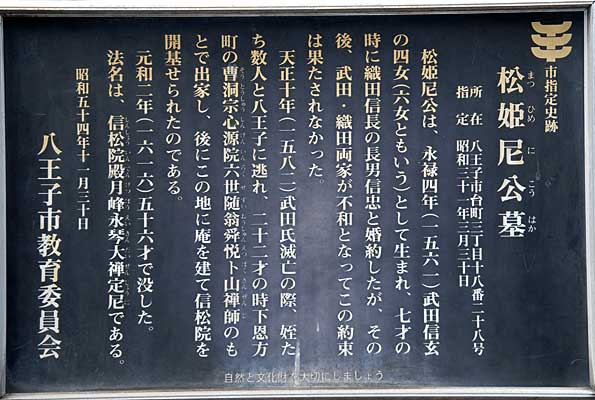 市指定史跡
松姫尼公墓
まつ ひめ に こう はか
所在 八王子市台町三丁目十八番二十八号
指定 昭和三十一年三月三十日
松姫尼公は、永禄四年(一五六一)武田信玄
の四女(六女ともいう)として生まれ、七才の
時に織田信長の長男信忠と婚約したが、その
後、武田・織田両家が不和となってこの約束
は果たされなかった。
天正十年(一五八二)武田氏滅亡の際、姪た
ち数人と八王子に逃れ、二十二才の時下恩方
町の曹洞宗心源院六世随翁舜悦卜山禅師のも
とで出家し、後にこの地に庵を建て信松院を
開基せられたのである。
元和二年(一六一六)五十六才で没した。
法名は、信松院殿月峰永琴大禅定尼である。
昭和五十四年十一月三十日
八王子市教育委員会
自然と文化財を大切にしましょう